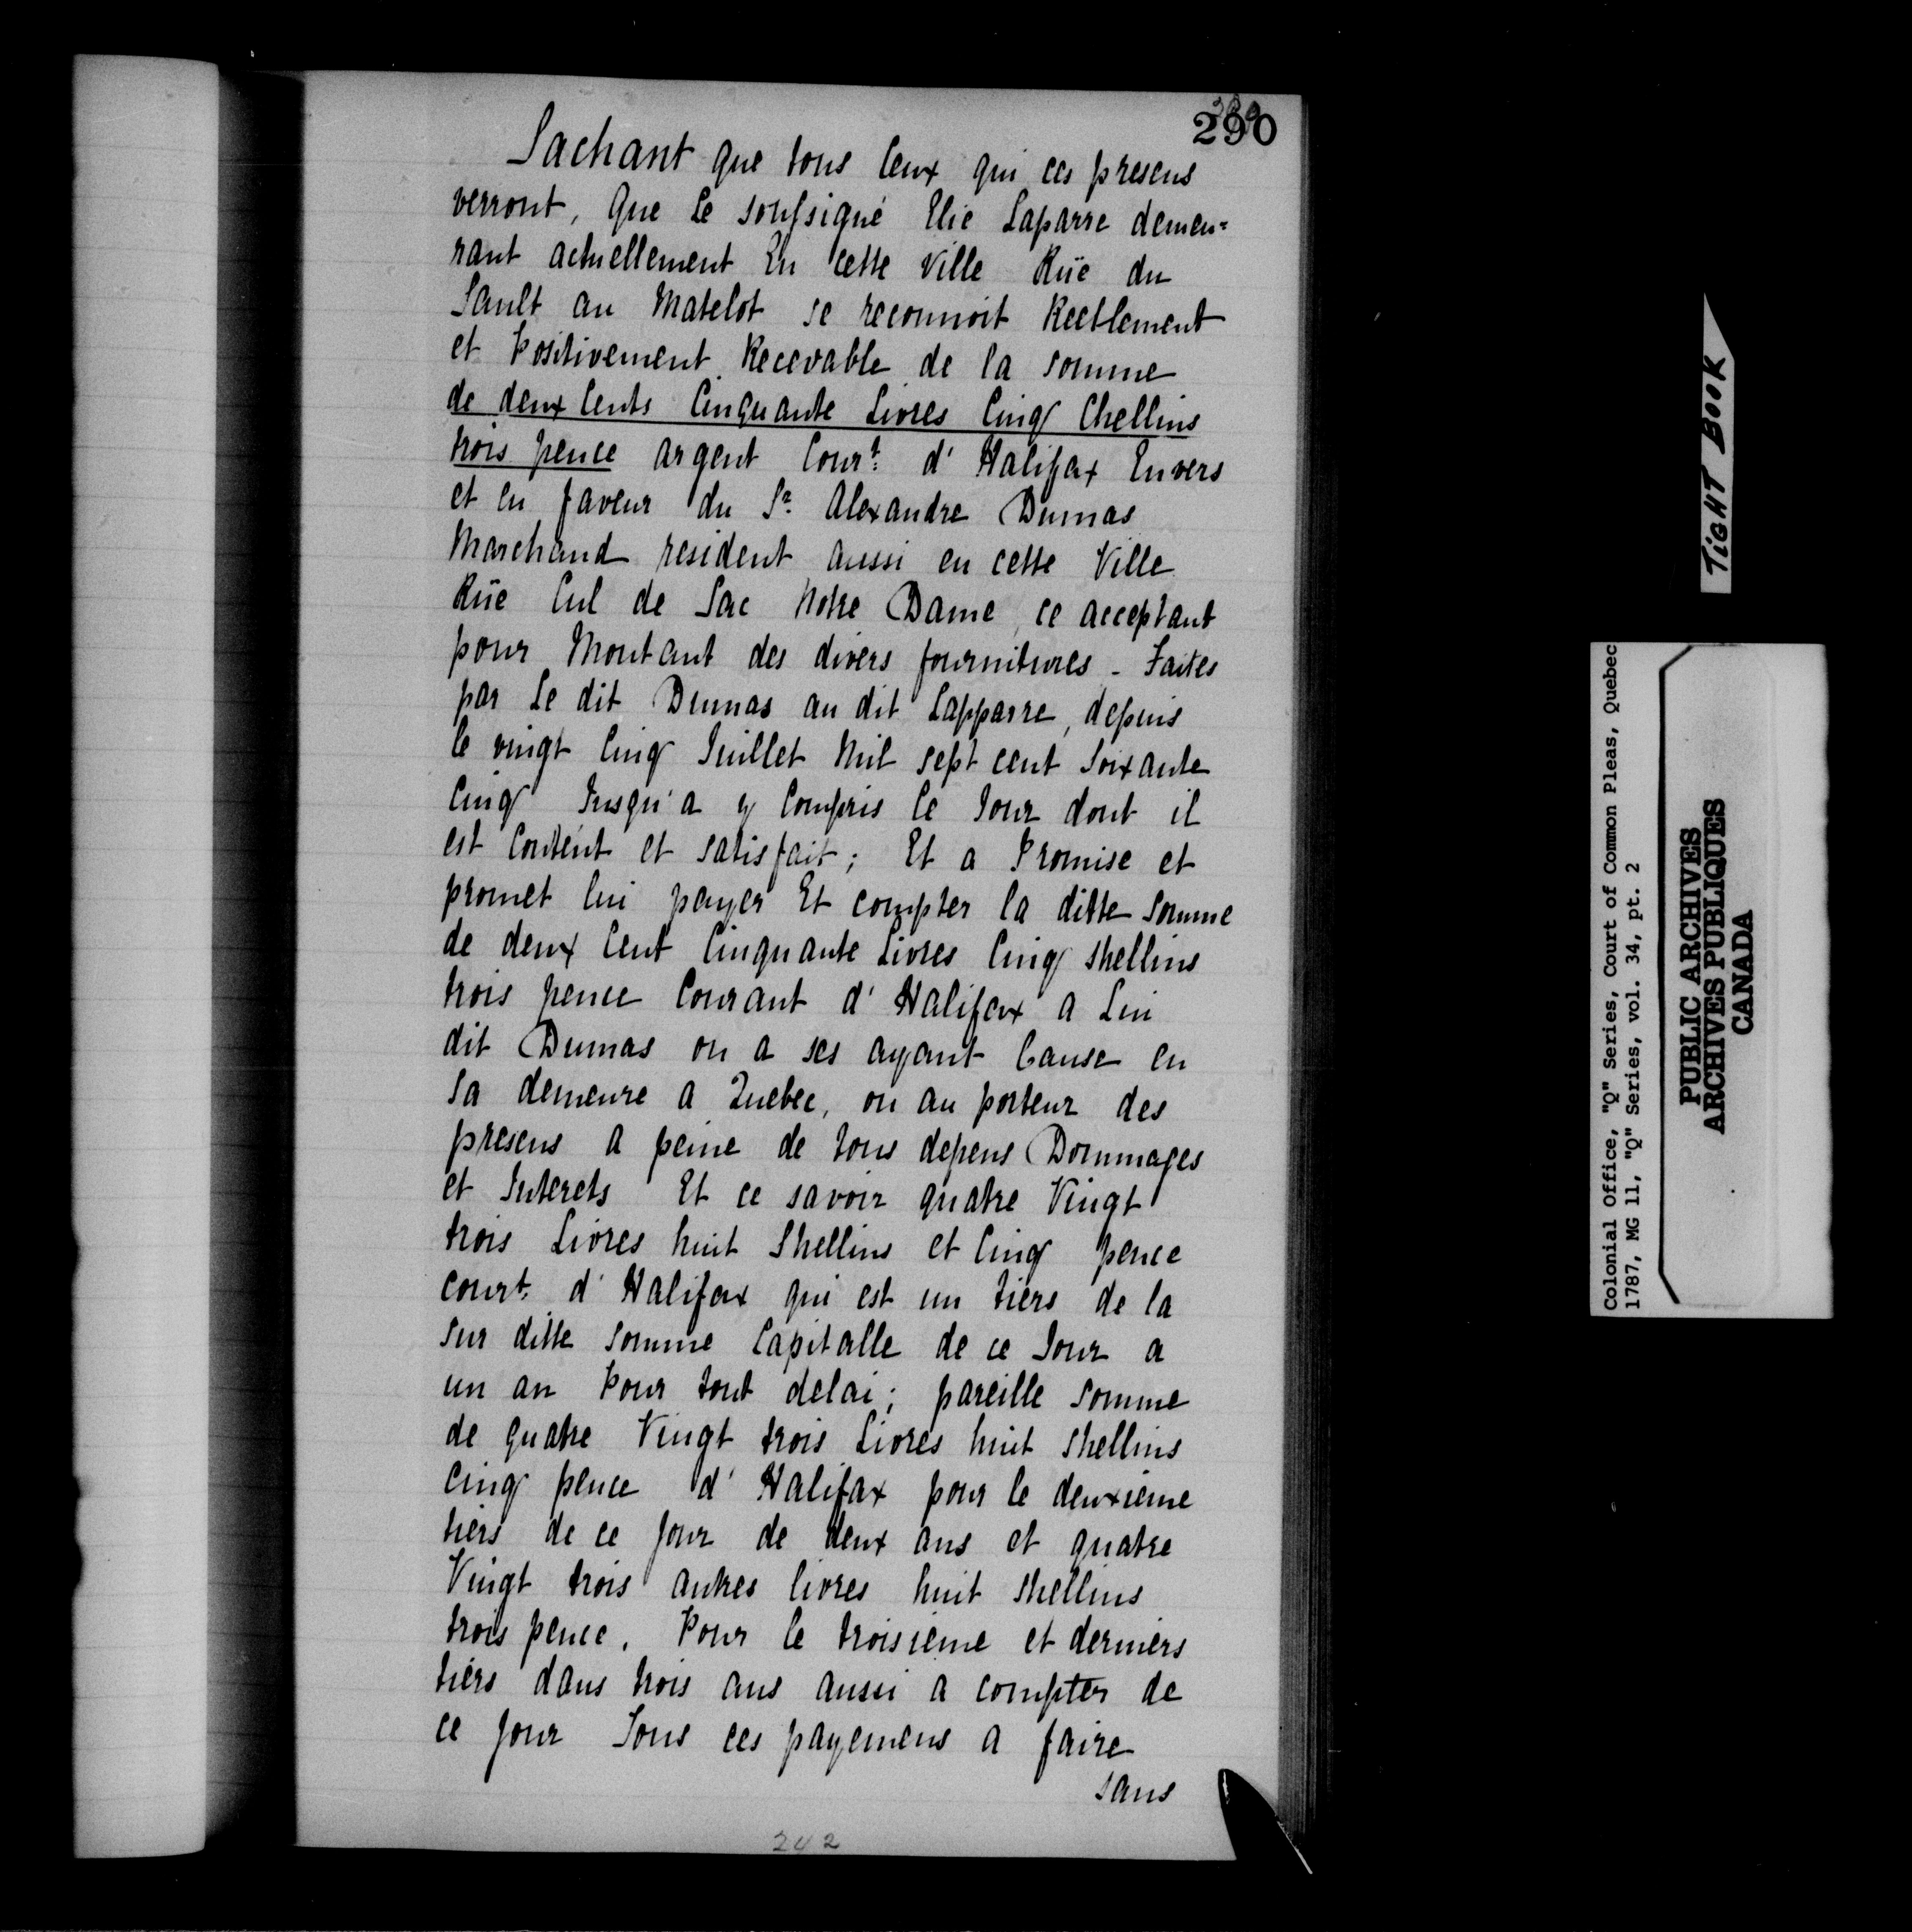 290
Sachant que tous Ceux qui ces presens
verront, Que Le soussigné Elie Laparre demeu=
rant actuellement En cette Ville Rüe du
Sault au Matelot se reconnoit Reellement
et Positivement Recevable de la somme
de deux Cents Cinquante Livres Cinq Chellins
trois pence argent Cour.t d'Halifax Envers
et en faveur du S.r Alexandre Dumas
Marchand resident aussi en cette Ville
Rüe Cul de Sac Notre Dame, ce acceptant
pour Montant des divers fournitures - Faites
par Le dit Dumas au dit Lapparre, depuis
le vingt Cinq Juillet Mil sept cent Soixante
Cinq Jusqu'a y Compris Ce Jour dont il
est Content et satisfait; Et a Promise et
promet lui payer Et compter la ditte Somme
de deux Cent Cinquante Livres Cinq shellins
trois pence Courant d'Halifax a Lui
dit Dumas ou a ses ayant Cause en
sa demeure a Quebec, ou au porteur des
presens a peine de tous depens Dommages
et Interets Et ce savoir quatre Vingt
trois Livres huit Shellins et Cinq pence
cour.t d'Halifax qui est un tiers de la
sur ditte somme Capitalle de ce Jour a
un an Pour tout delai; pareille somme
de quatre Vingt trois Livres huit shellins
Cinq pence d'Halifax pour le deuxieme
tiers de ce jour de deux ans et quatre
Vingt trois autres livres huit shellins
trois pence. Pour le troisieme et derniers
tiers dans trois ans aussi a compter de
ce jour Tous ces payemens a faire
sans
242
TIGHT BOOK
Colonial Office, "Q" Series, Court of Common Pleas, Quebec
1787, MG 11, "Q" Series, vol. 34, pt. 2
PUBLIC ARCHIVES
ARCHIVES PUBLIQUES
CANADA